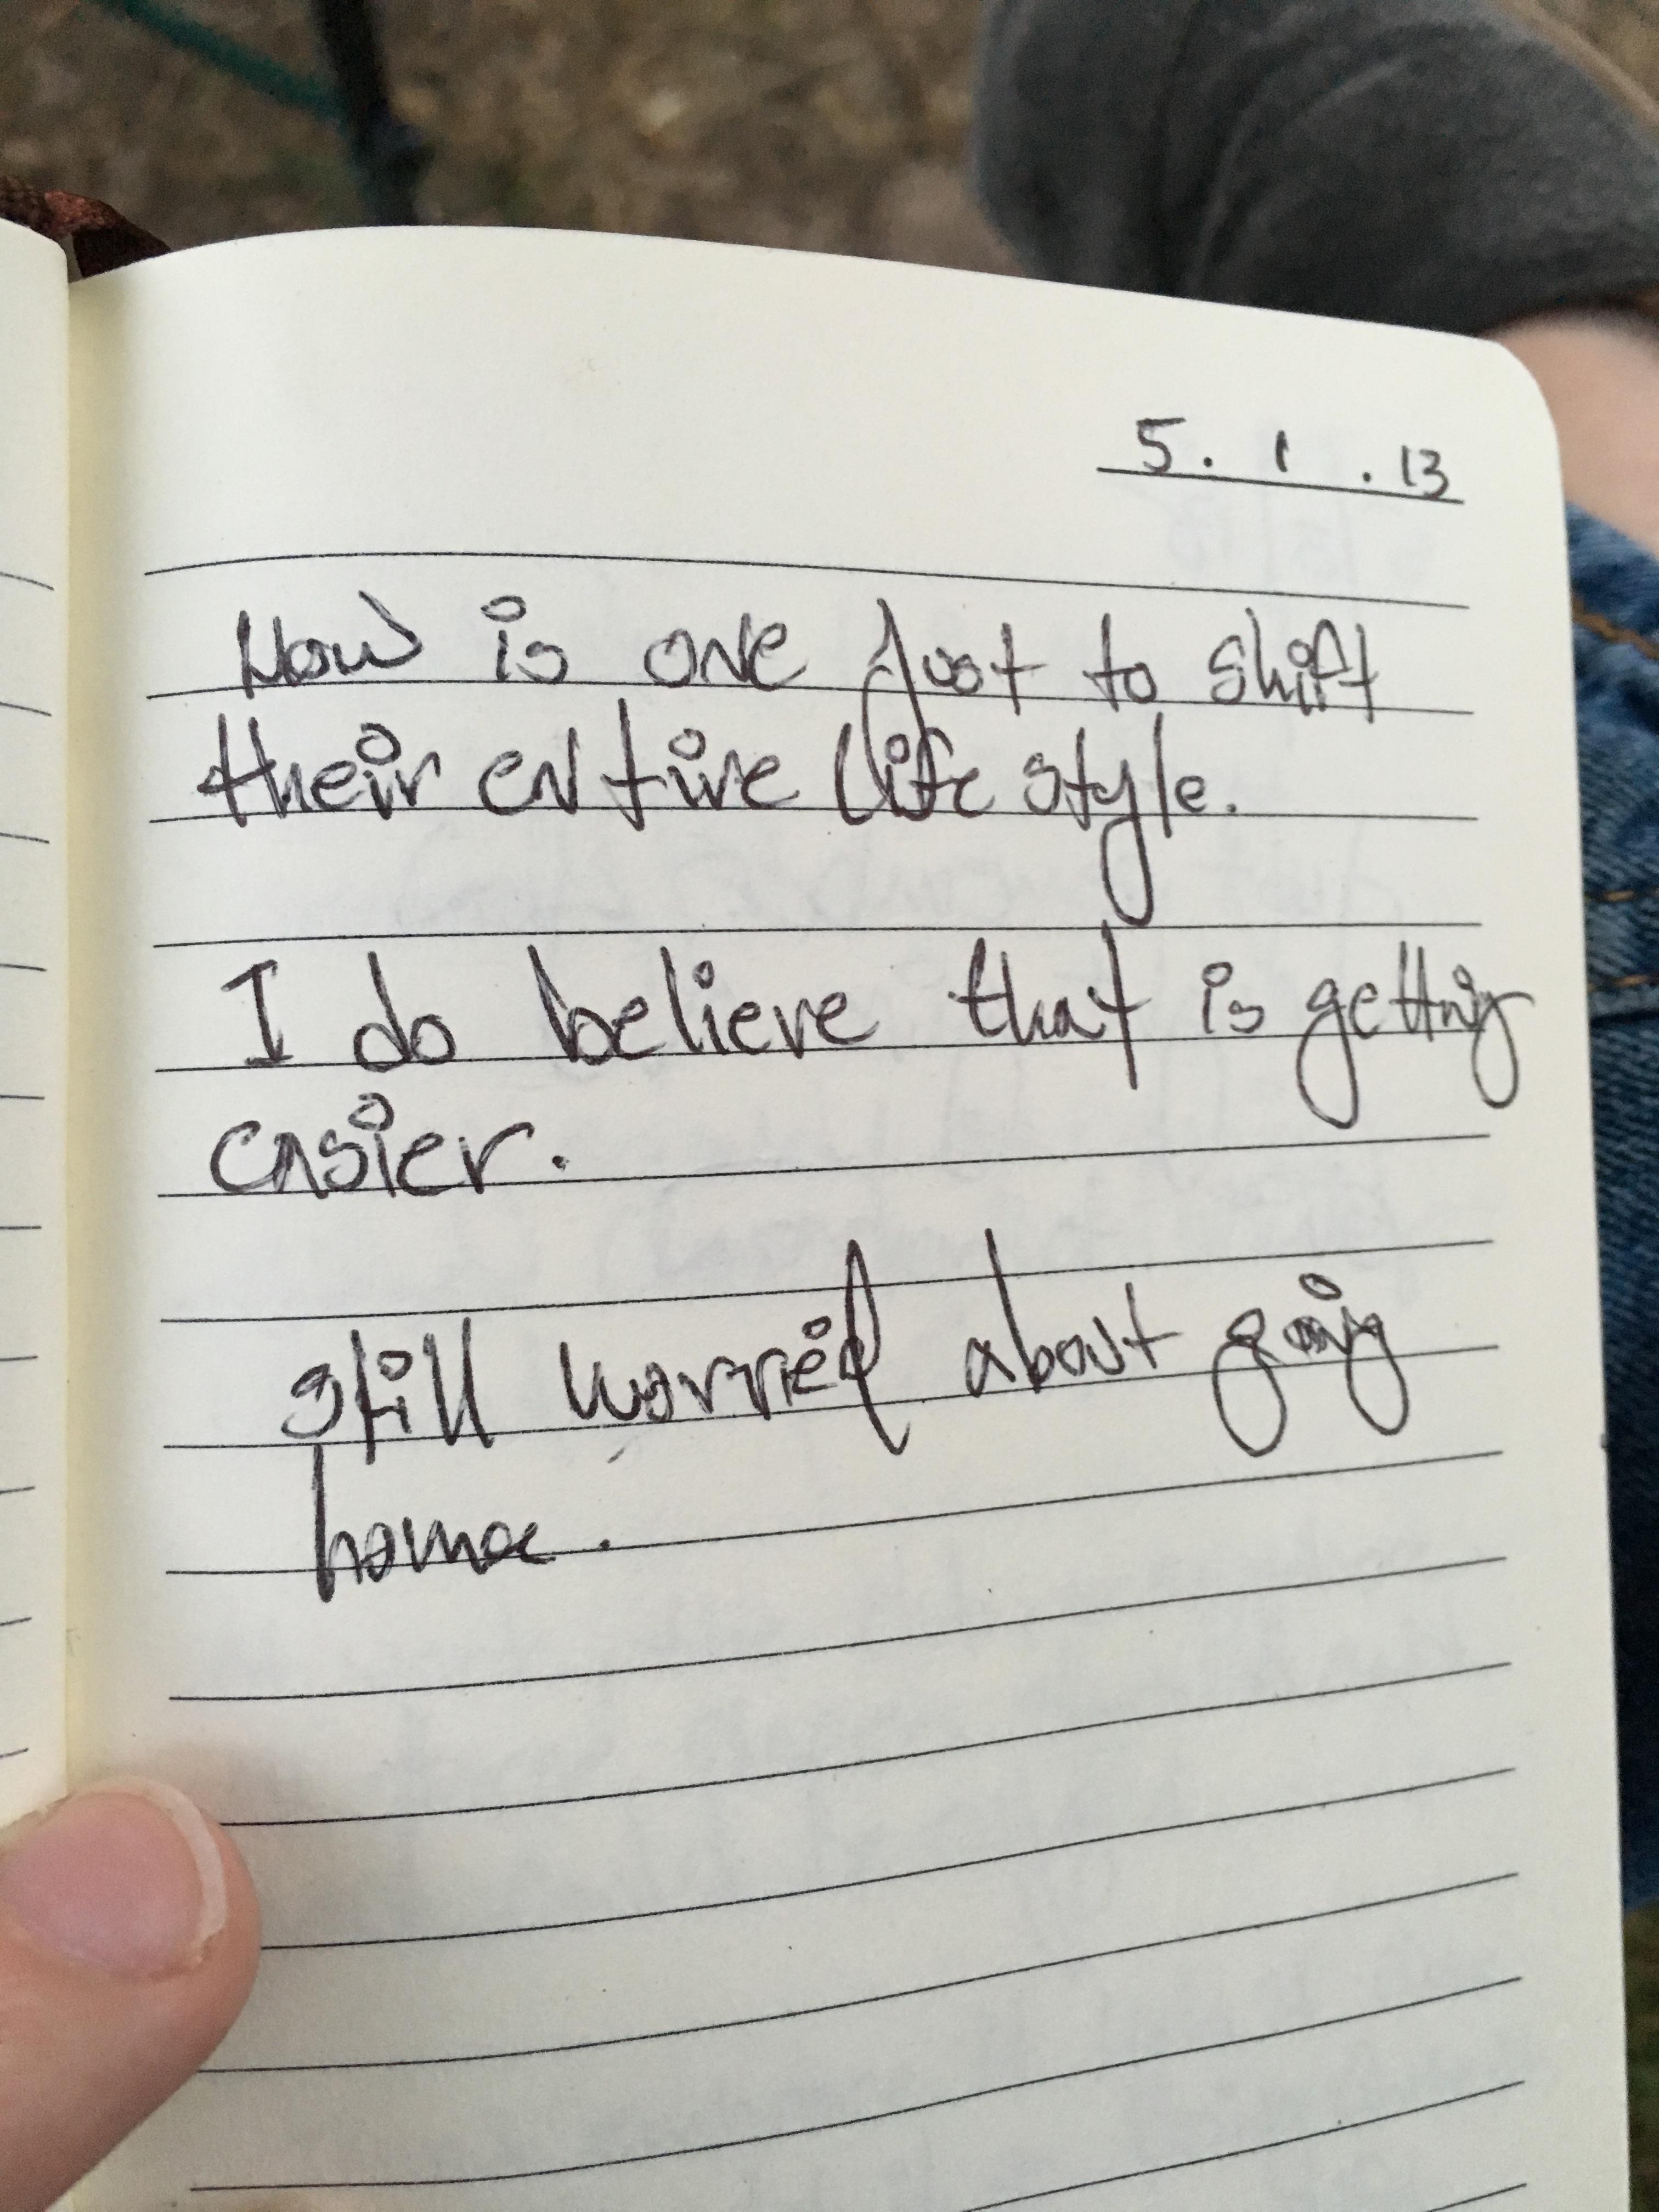 5. 1 . 13
How is one just to shift
their entire life style.
I do believe that is getting
easier.
still worried about going
home.